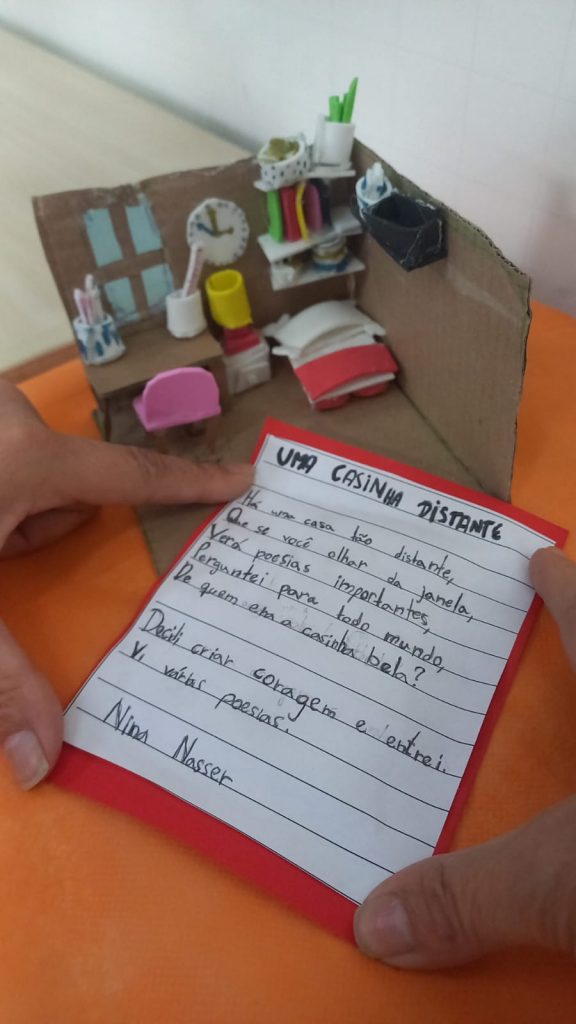 UMA CASINHA DISTANTE
Há uma casa tão distante,
Que se você olhar da janela,
Verá poesias importantes,
Perguntei para todo mundo,
De quem era a casinha bela?
Decidi criar coragem e entrei.
Vi várias poesias.
Nina Nasser